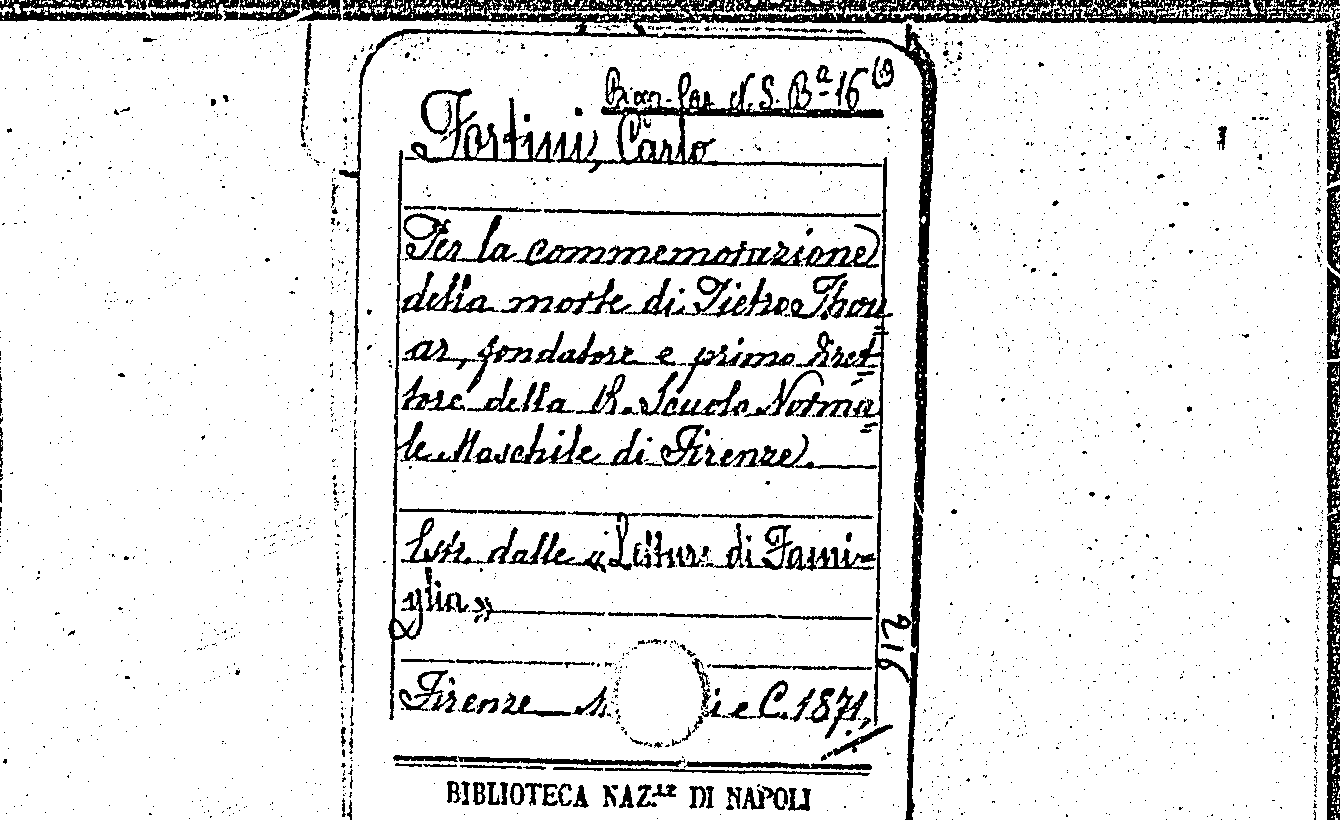 S. Bª 16 (9
Fortini, Carlo
Per la commemorazione
della morte di Pietro Thou=
ar, fondatore e primo Diret=
tore della R. Scuola Norma=
le Maschile di Firenze.
Estr. dalle «Letture di Fami=
glia»
216
Firenze e C. 1871.
BIBLIOTECA NAZ.LE DI NAPOLI